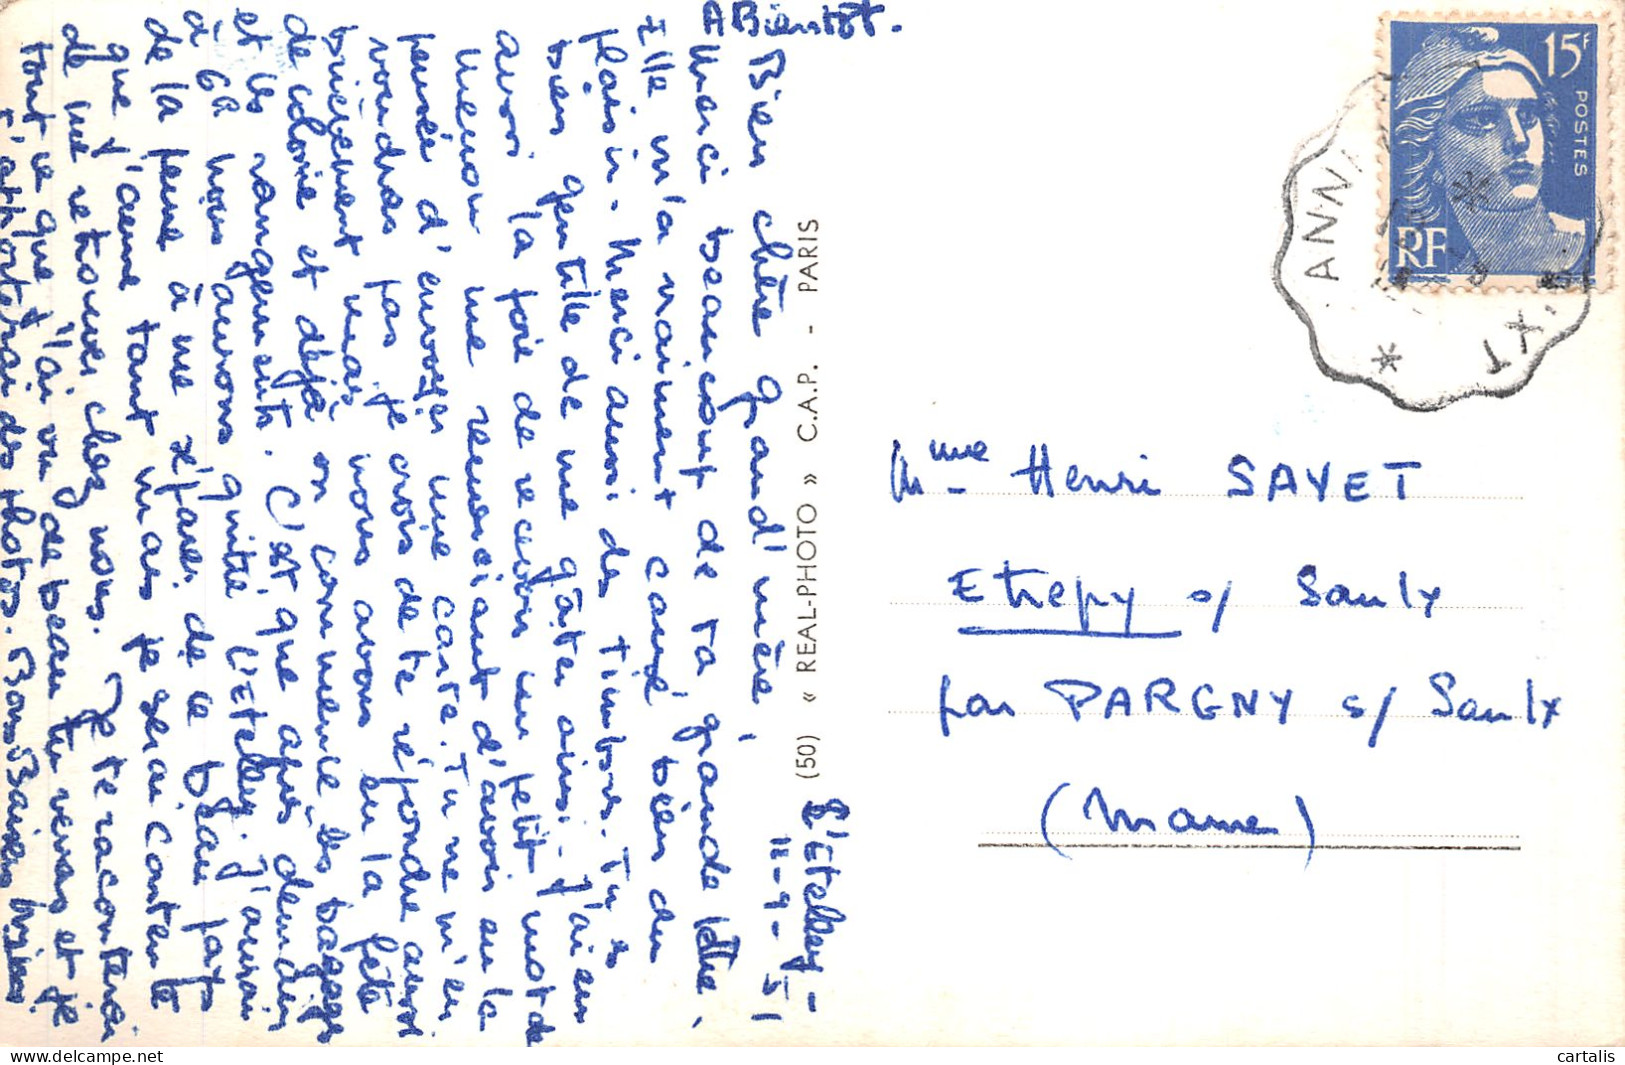 L'Etelley -
12-9-51
Bien chère grand'mère,
Merci beaucoup de ta grande lettre,
Elle m'a vraiment causé bien du
plaisir. Merci aussi des timbres. Tu es
bien gentille de me gâter ainsi. J'ai eu
aussi la joie de recevoir un petit mot de
me remerciant d'avoir eu la
pensée d'envoyer une carte. Tu ne m'en
voudras pas je crois de te répondre aussi
brièvement, mais nous avons eu la fête
de colonie et déjà on commence les bagages
et les rangements. C'est que après demain
à 6h nous aurons quitté l'Etelley. J'aurai
de la peine à me séparer de ce beau pays
que j'aime tant mais je serai contente
de me retrouver chez nous. Je te raconterai
tout ce que j'ai vu de beau tu verras et je
t'apporterai des photos. Bons Baisers
A Bientôt.
(50) « REAL-PHOTO » C.A.P. - PARIS
15F
POSTES
RF
ANN
Mme Henri SAYET
Etrepy s/ Saulx
par PARGNY s/ Saulx
(Marne)
cartalis